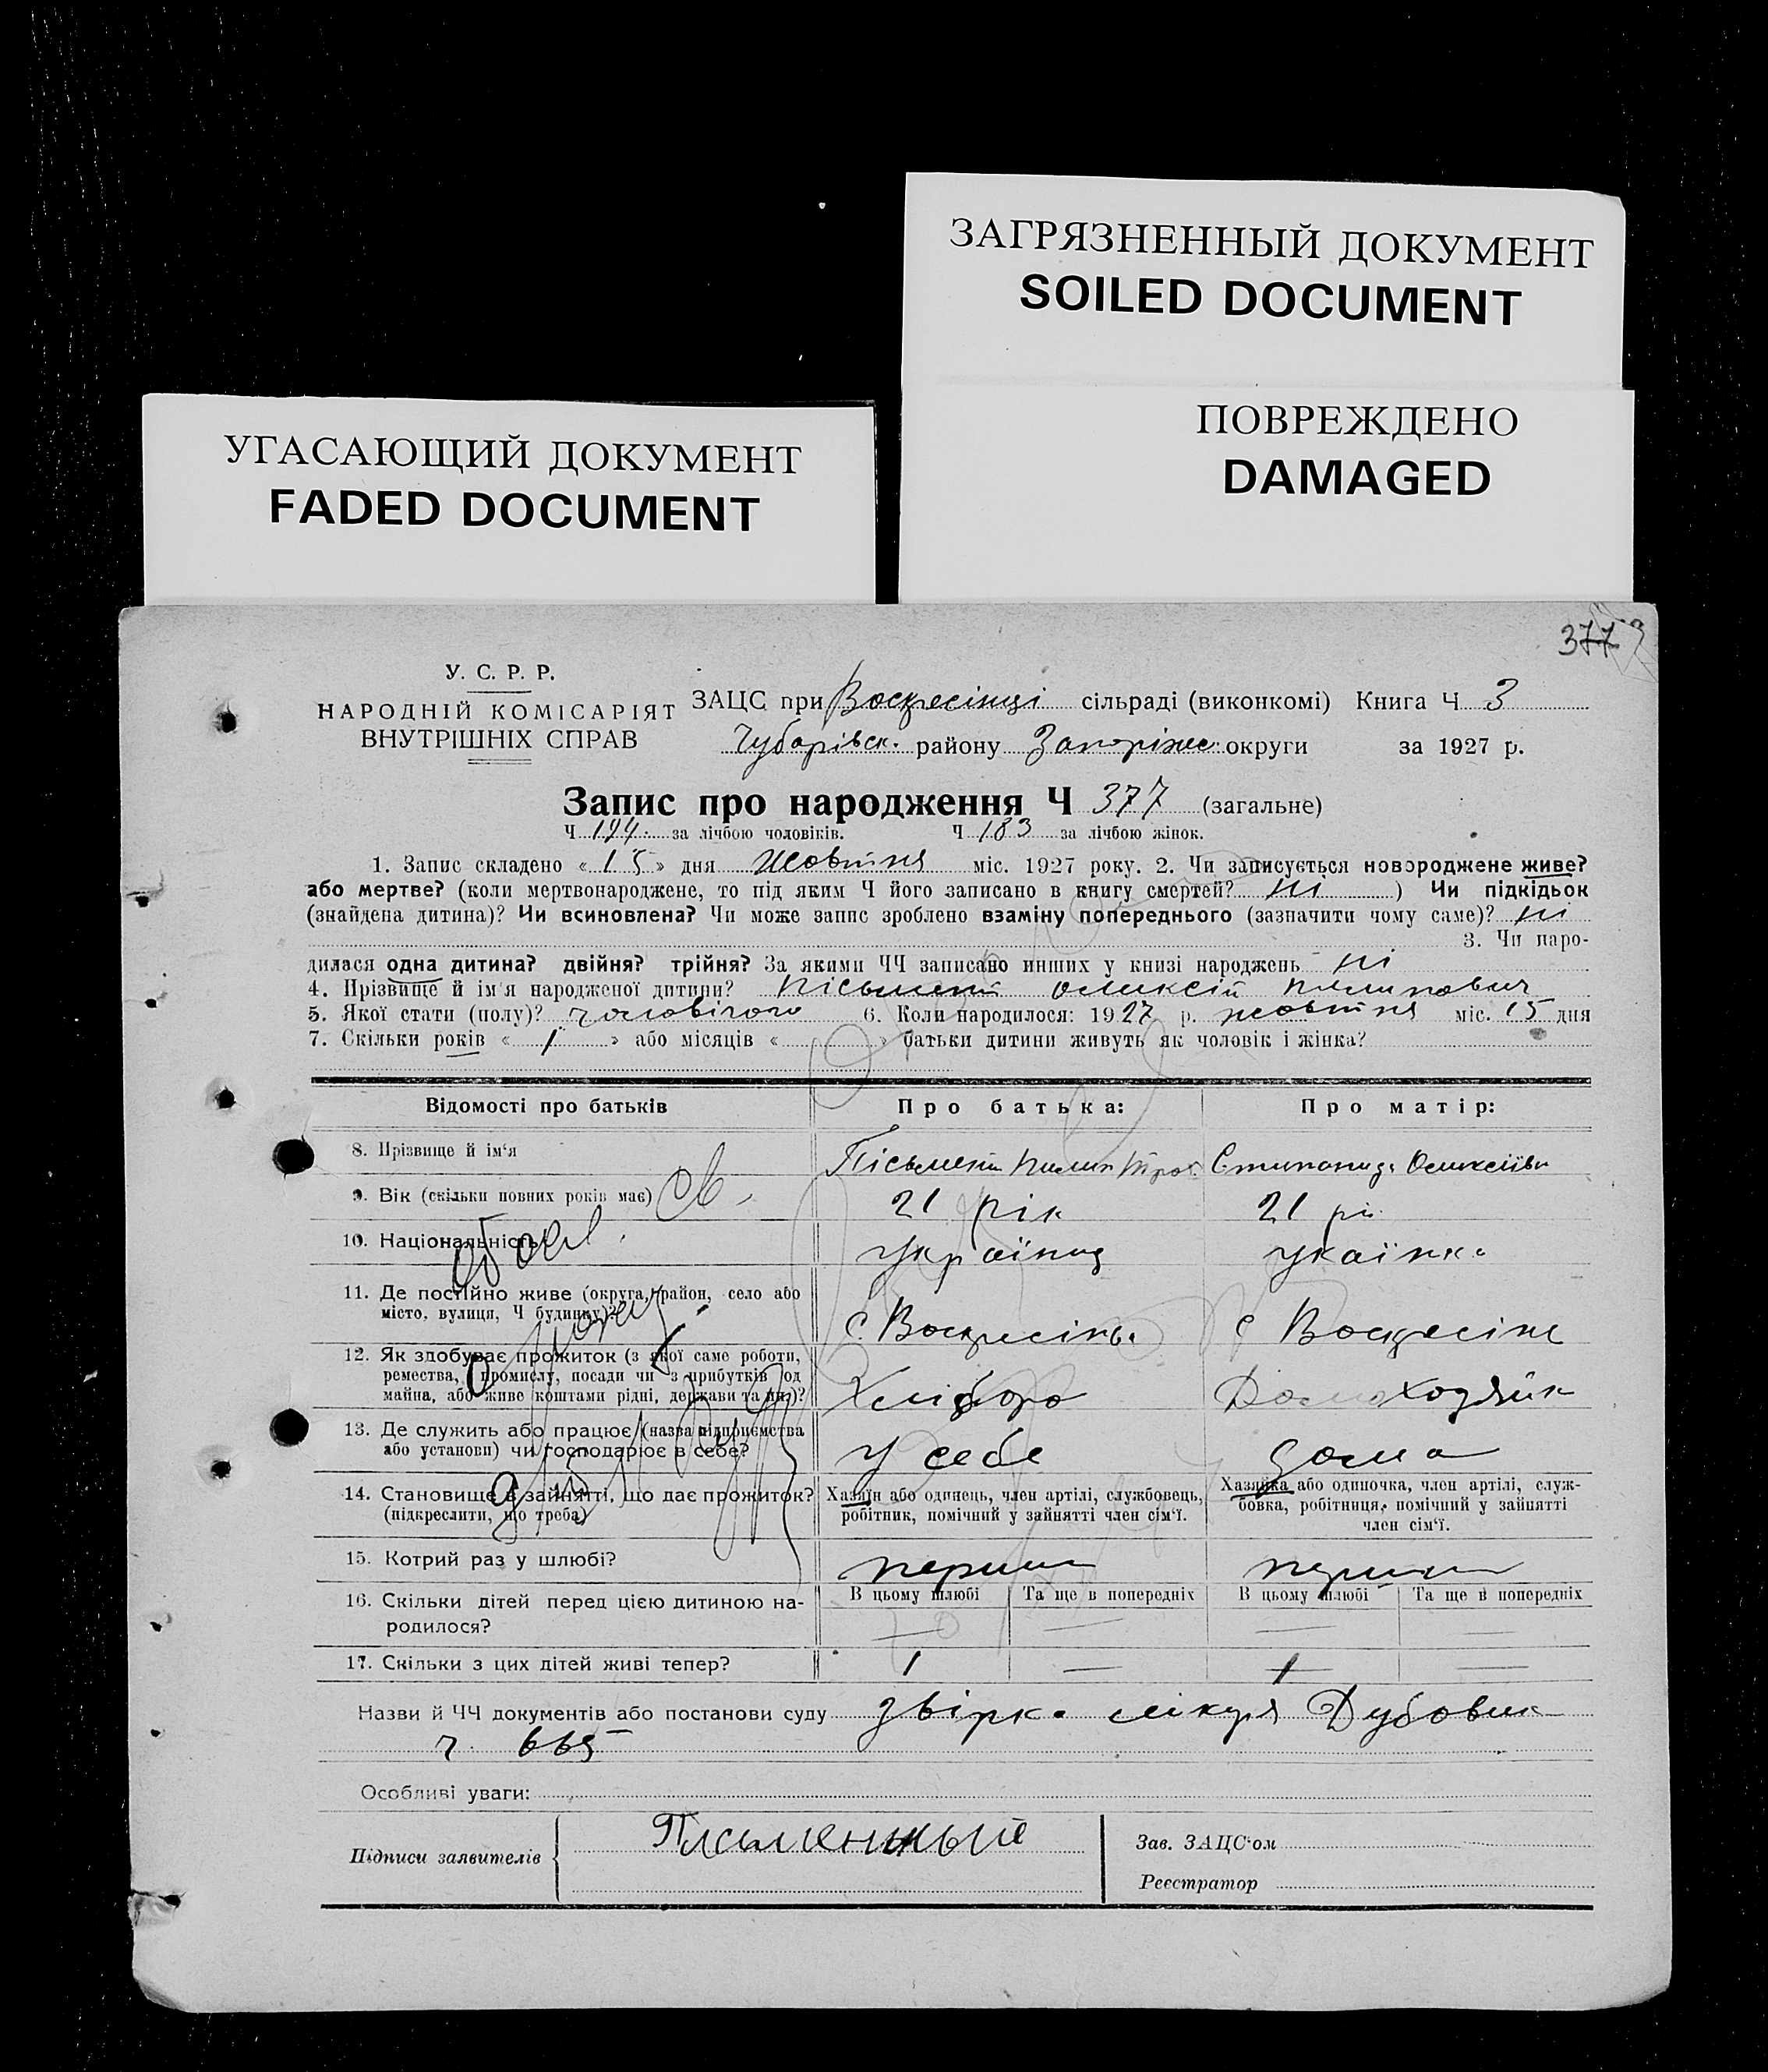 ЗАГРЯЗНЕННЫЙ ДОКУМЕНТ
SOILED DOCUMENT
УГАСАЮЩИЙ ДОКУМЕНТ
FADED DOCUMENT
ПОВРЕЖДЕНО
DAMAGED
377
У. С. Р. Р.
НАРОДНІЙ КОМІСАРІЯТ
ВНУТРІШНІХ СПРАВ
ЗАЦС при Воскресінці сільраді (виконкомі) Книга Ч 3
Чубарівск. району Запоріже округи за 1927 р.
Запис про народження Ч 377 (загальне)
Ч 194. за лічбою чоловіків. Ч 183 за лічбою жінок.
1. Запис складено « 15 » дня жовтня міс. 1927 року. 2. Чи записується новороджене живе?
або мертве? (коли мертвонароджене, то під яким Ч його записано в книгу смертей? ні ) Чи підкідьок
(знайдена дитина)? Чи всиновлена? Чи може запис зроблено взаміну попереднього (зазначити чому саме)? ні
3. Чи наро-
дилася одна дитина? двійня? трійня? За якими ЧЧ записано инших у книзі народжень ні
4. Прізвище й ім'я народженої дитини? Пісьмений Оликсій Пилипович
5. Якої стати (полу)? чоловічого 6. Коли народилося: 1927 р. жовтня міс. 15 дня
7. Скільки років « 1 » або місяців « » батьки дитини живуть як чоловік і жінка?
Відомості про батьків Про батька: Про матір:
8. Прізвище й ім'я Пісьмений Пилип Степанида Оликсіївн
9. Вік (скільки повних років має) 21 рік 21 рік
10. Національність україниц украінка
11. Де постійно живе (округа, район, село або
місто, вулиця, Ч будинку)? с. Воскресінка с Воскресінк
12. Як здобуває прожиток (з якої саме роботи,
ремества, промислу, посади чи з прибутків од
майна, або живе коштами рідні, держави та ин.)? Хлібороб
13. Де служить або працює (назва підприємства
або установи) чи господарює в себе? у себе дома
14. Становище в зайнятті, що дає прожиток?
(підкреслити, що треба)
Хазяїн або одинець, член артілі, службовець,
робітник, помічний у зайнятті член сім'ї.
Хазяйка або одиночка, член артілі, служ-
бовка, робітниця, помічний у зайнятті
член сім'ї.
15. Котрий раз у шлюбі? перший перший
16. Скільки дітей перед цією дитиною на-
родилося?
В цьому шлюбі Та ще в попередніх В цьому шлюбі Та ще в попередніх
— — — —
17. Скільки з цих дітей живі тепер? 1 — 1 —
Назви й ЧЧ документів або постанови суду звірка лікуря Дубовик
ч. 665
Особливі уваги:
Підписи заявителів Письменный
Зав. ЗАЦС'ом
Реєстратор